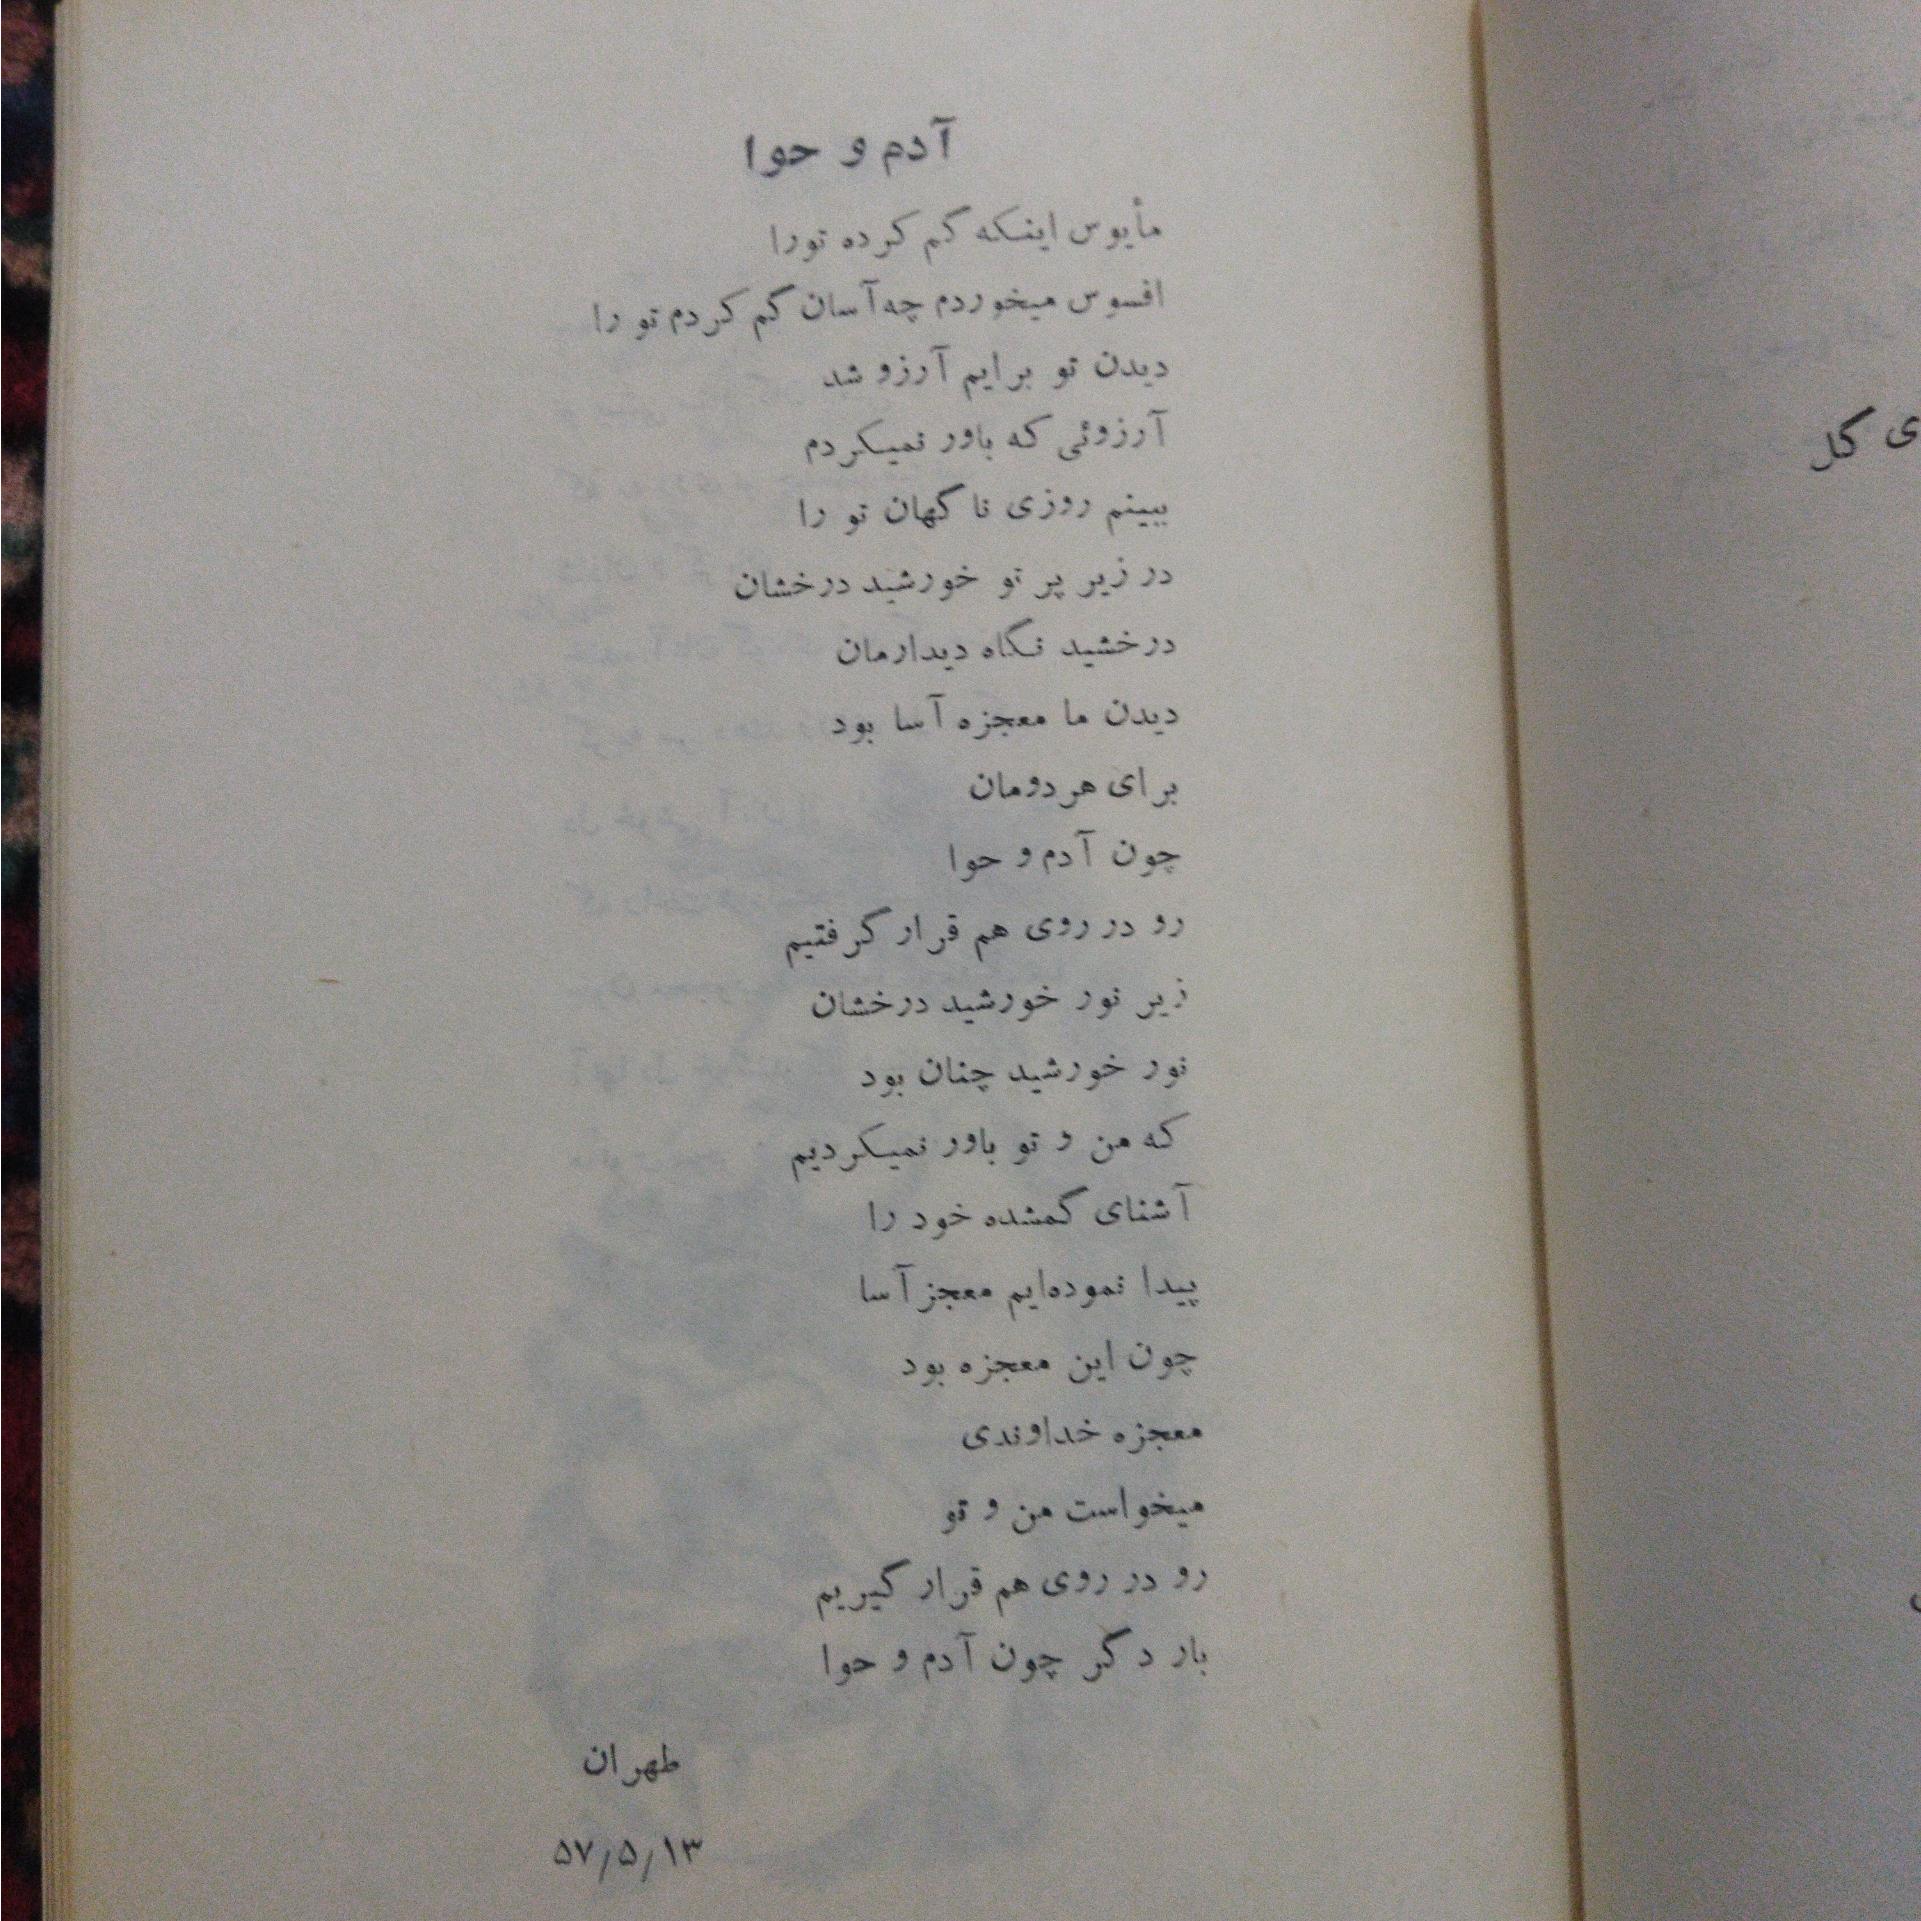 آدم و حوا
مأیوس اینکه گم کرده تورا
افسوس میخوردم چه‌آسان گم کردم تو را
دیدن تو برایم آرزو شد
آرزوئی که باور نمیکردم
ببینم روزی ناگهان تو را
در زیر پر تو خورشید درخشان
درخشید نگاه دیدارمان
دیدن ما معجزه آسا بود
برای هردومان
چون آدم و حوا
رو در روی هم قرار گرفتیم
زیر نور خورشید درخشان
نور خورشید چنان بود
که من و تو باور نمیکردیم
آشنای گمشده خود را
پیدا نموده‌ایم معجزآسا
چون این معجزه بود
معجزه خداوندی
میخواست من و تو
رو در روی هم قرار گیریم
بار دگر چون آدم و حوا
طهران
۵۷/۵/۱۳
ی گل